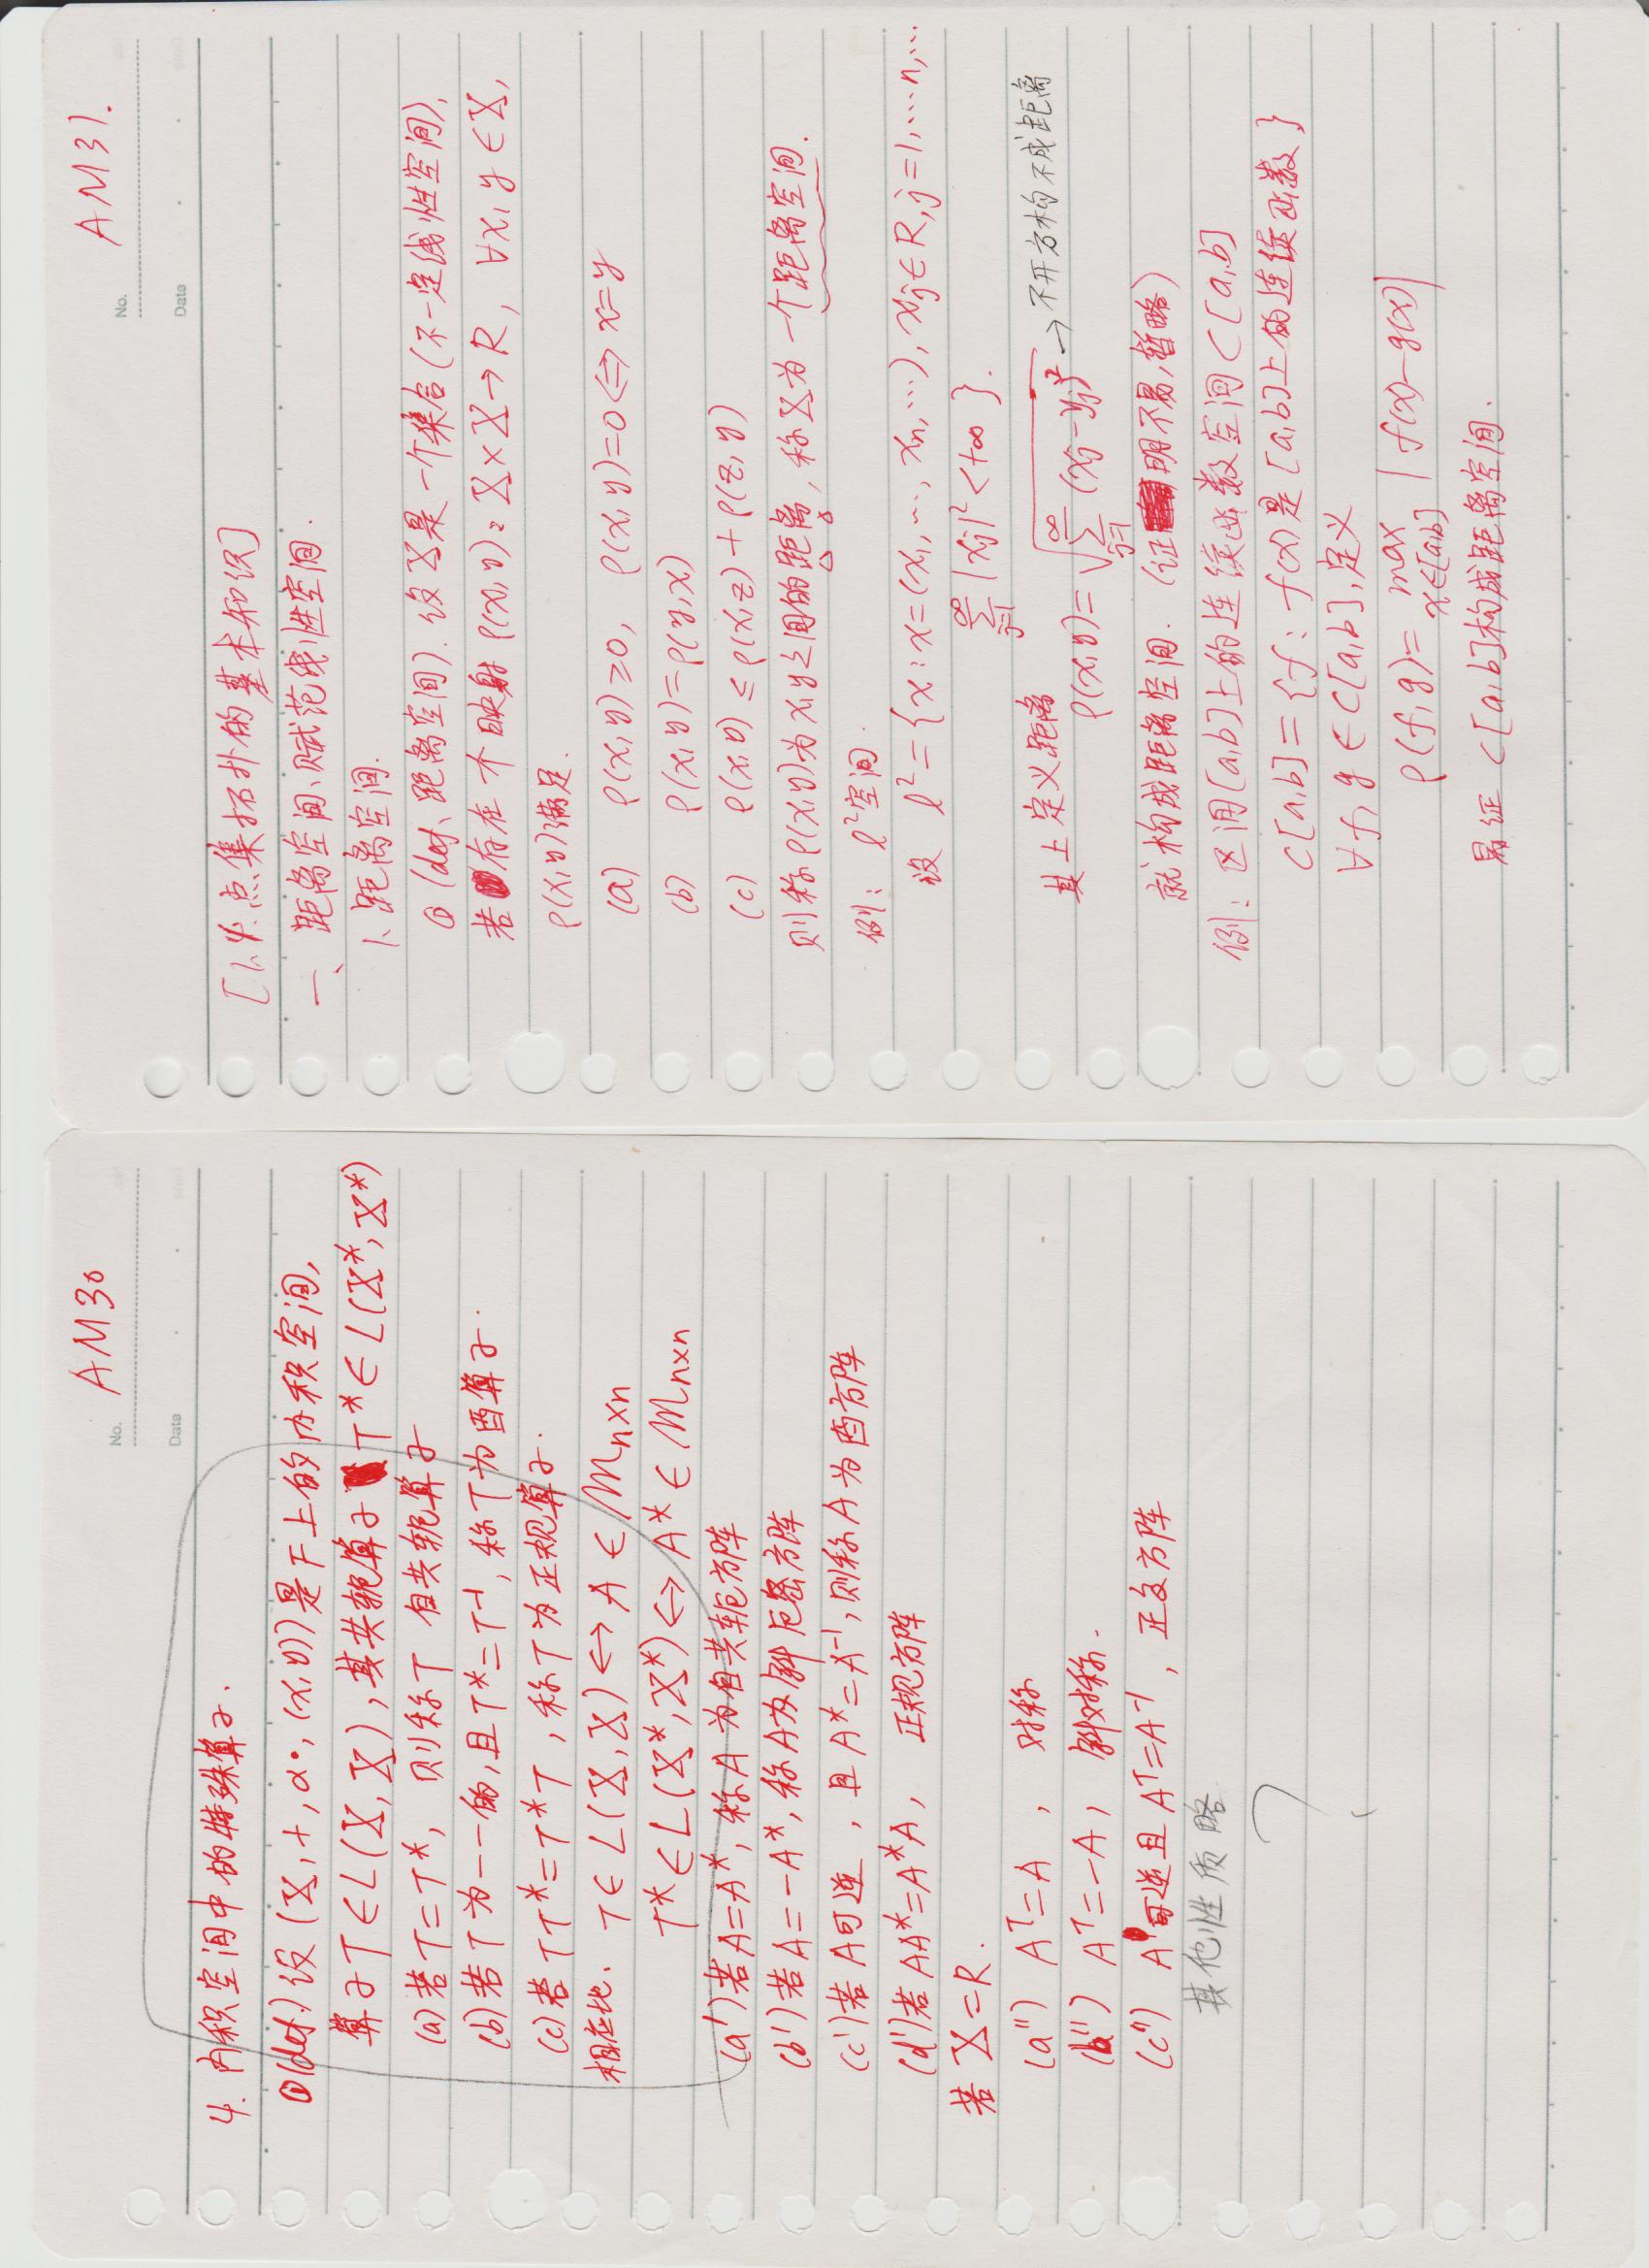 AM30
No.
Date
4. 内积空间中的特殊算子.
①(def.) 设 (X, +, α•, (x,y)) 是F上的内积空间,
算子T∈L(X, X), 其共轭算子 T*∈L(X*, X*)
(a) 若T=T*, 则称T 自共轭算子
(b) 若T为一一的, 且T*=T⁻¹, 称T为酉算子.
(c) 若TT*=T*T, 称T为正规算子.
相应地. T∈L(X, X) ↔ A∈Mn×n
T*∈L(X*, X*) ↔ A*∈Mn×n
(a') 若A=A*, 称A为自共轭方阵
(b') 若A=-A*, 称A为斜厄密方阵
(c') 若A可逆, 且A*=A⁻¹, 则称A为酉方阵
(d') 若AA*=A*A, 正规方阵
若X=R.
(a'') Aᵀ=A, 对称
(b'') Aᵀ=-A, 斜对称.
(c'') A可逆且Aᵀ=A⁻¹, 正交方阵
其他性质略
?
AM31.
No.
Date
[1.4. 点集拓扑的基本知识]
一、距离空间、赋范线性空间.
1. 距离空间.
① (def、距离空间). 设X是一个集合(不一定线性空间),
若存在个映射 ρ(x,y): X×X→R, ∀x, y∈X,
ρ(x,y)满足.
(a) ρ(x,y)≥0, ρ(x,y)=0⇔x=y
(b) ρ(x,y)=ρ(y,x)
(c) ρ(x,y)≤ρ(x,z)+ρ(z,y)
则称ρ(x,y)为x,y之间的距离, 称X为一个距离空间.
例: ℓ²空间.
设 ℓ²={x: x=(x₁, …, xₙ, …), xⱼ∈R, j=1, …n, …
∑_{j=1}^{∞} |xⱼ|²<+∞}.
其上定义距离
ρ(x,y)=√(∑_{j=1}^{∞} (xⱼ-yⱼ)²) → 不开方构不成距离
就构成距离空间. (证明不易, 暂略)
例: 区间[a,b]上的连续函数空间C[a,b]
C[a,b]={f: f(x)是[a,b]上的连续函数}
∀f, g∈C[a,b], 定义
ρ(f,g)= max_{x∈[a,b]} |f(x)-g(x)|
易证 C[a,b]构成距离空间.